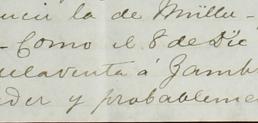 la de Müllu-
- Como el 8 de Dic
la venta á Zamb
der y probableme